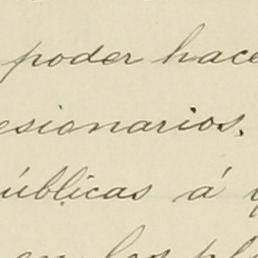 poder hace
esionarios.
úblicas á
en los